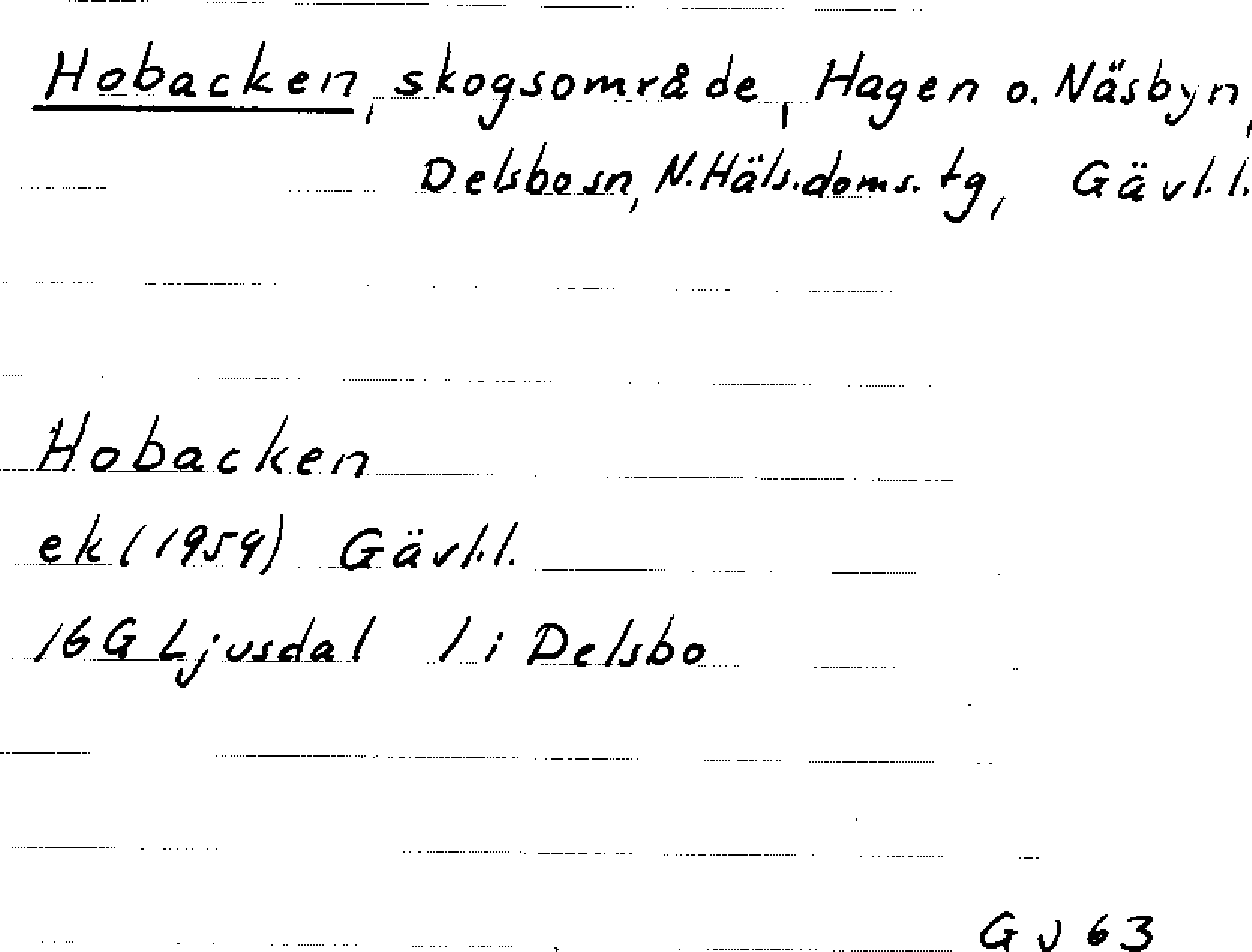 Hobacken, skogsområde, Hagen o. Näsbyn,
Delsbo sn, N. Häls. doms. tg, Gävl. l.
Hobacken
ek (1959) Gävl. l.
16G Ljusdal 1 i Delsbo
G v 63